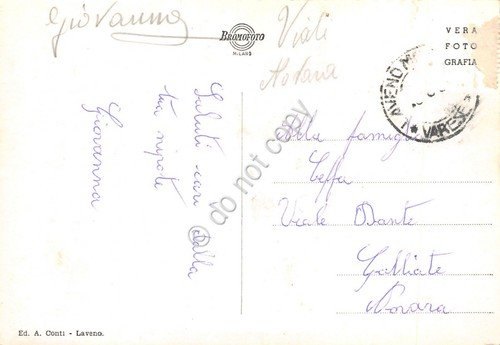 Giovanna
BROMOFOTO
MILANO
Viali
Novara
VERA
FOTO
GRAFIA
LAVENO M
* VARESE *
Saluti cari dalla
tua nipote
Giovanna
Alla famiglia
Ceffa
Viale Dante
Galliate
Novara
do not copy
Ed. A. Conti - Laveno.